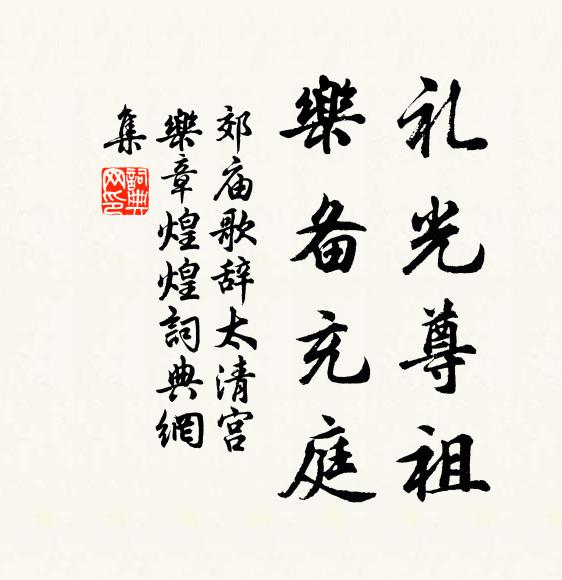 礼光尊祖
樂备充庭
郊庙歌辞太清宫
樂章煌煌詞典網
集
詞典网印